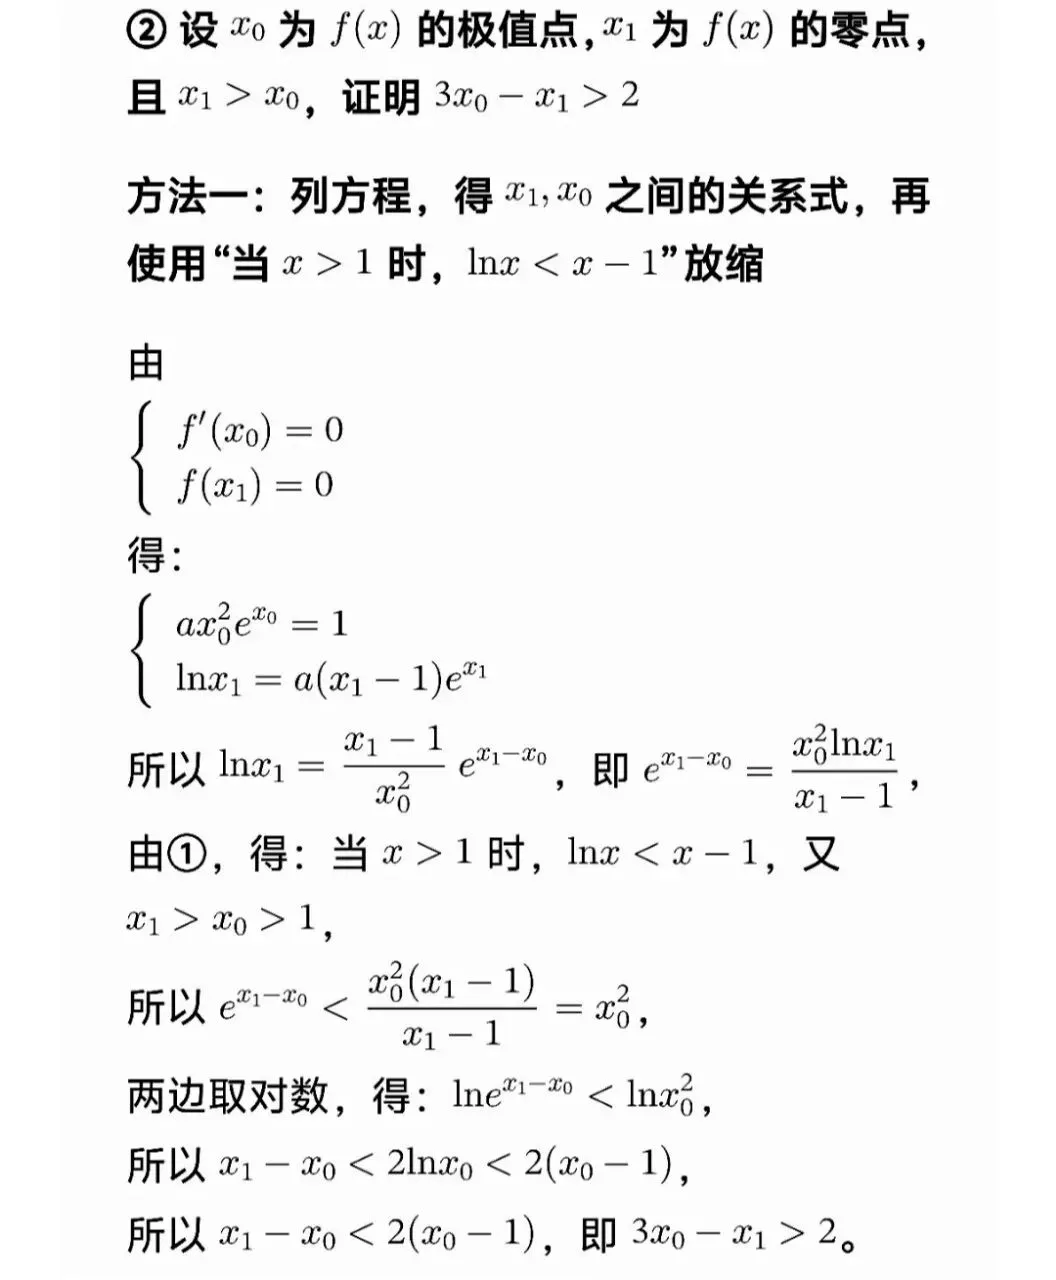 ② 设 x₀ 为 f(x) 的极值点,x₁ 为 f(x) 的零点，
且 x₁ > x₀，证明 3x₀ − x₁ > 2
方法一：列方程，得 x₁, x₀ 之间的关系式，再
使用“当 x > 1 时，lnx < x − 1”放缩
由
{ f′(x₀) = 0
f(x₁) = 0
得：
{ ax₀²e^{x₀} = 1
lnx₁ = a(x₁ − 1)e^{x₁}
所以 lnx₁ = \frac{x₁ − 1}{x₀²} e^{x₁−x₀}，即 e^{x₁−x₀} = \frac{x₀²lnx₁}{x₁ − 1}，
由①，得：当 x > 1 时，lnx < x − 1，又
x₁ > x₀ > 1，
所以 e^{x₁−x₀} < \frac{x₀²(x₁ − 1)}{x₁ − 1} = x₀²，
两边取对数，得：lne^{x₁−x₀} < lnx₀²，
所以 x₁ − x₀ < 2lnx₀ < 2(x₀ − 1)，
所以 x₁ − x₀ < 2(x₀ − 1)，即 3x₀ − x₁ > 2。